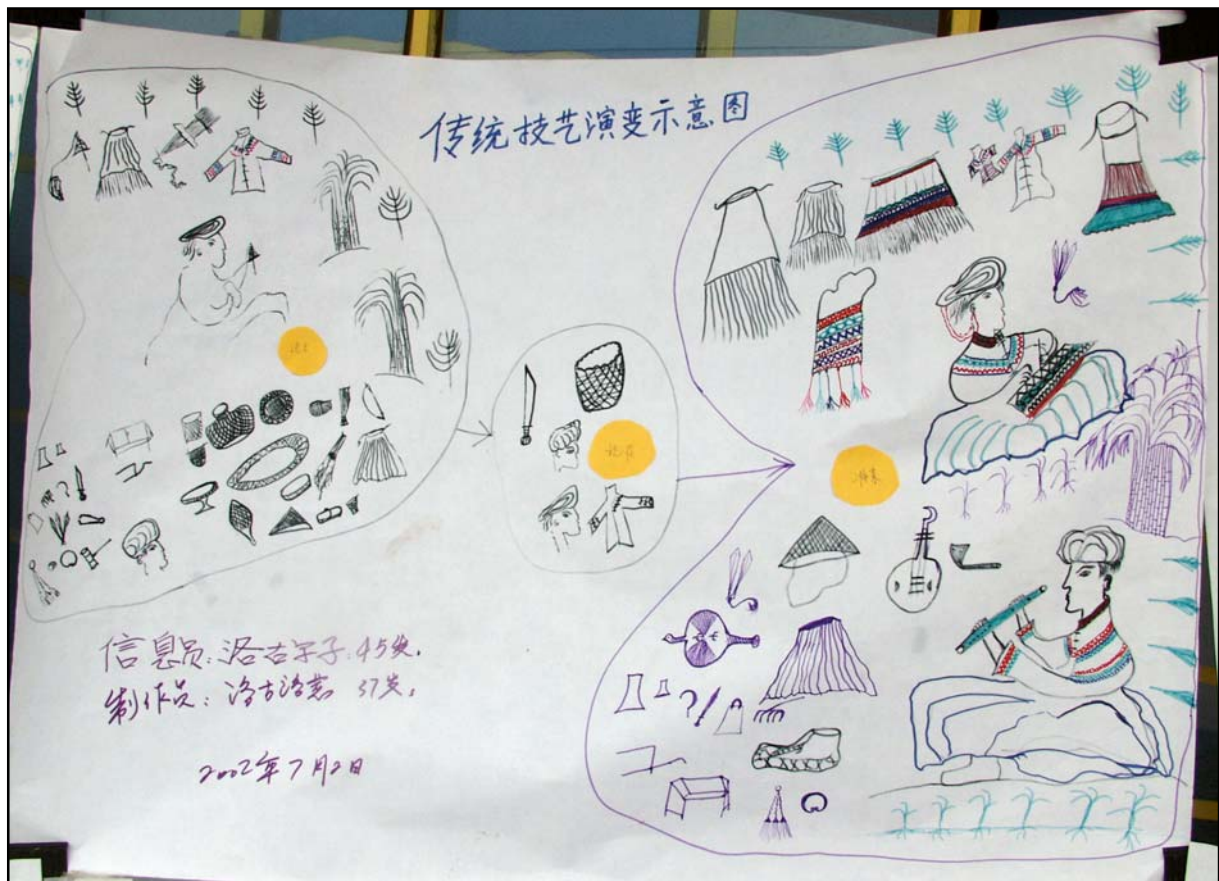 传统技艺演变示意图
信息员:洛古字子 45岁.
制作员:洛古洛莫 37岁.
2002年7月2日